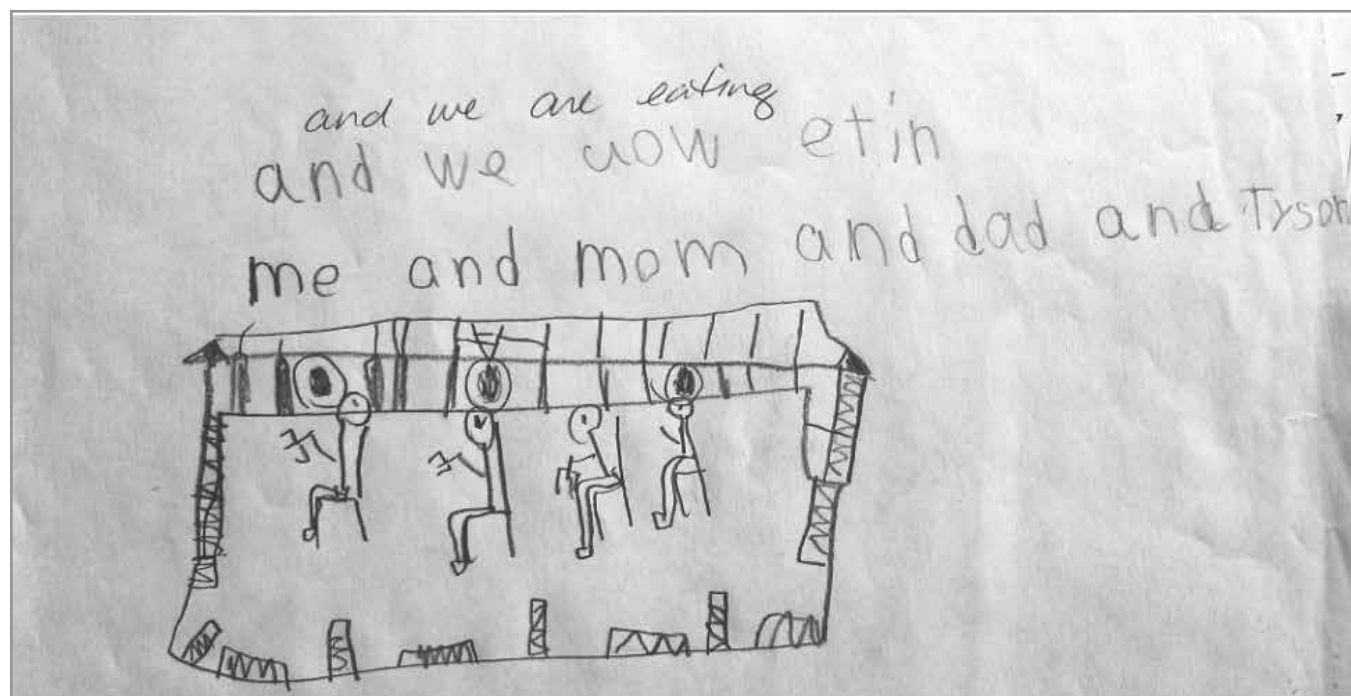 and we are eating
and we uow etin
me and mom and dad and Tyson